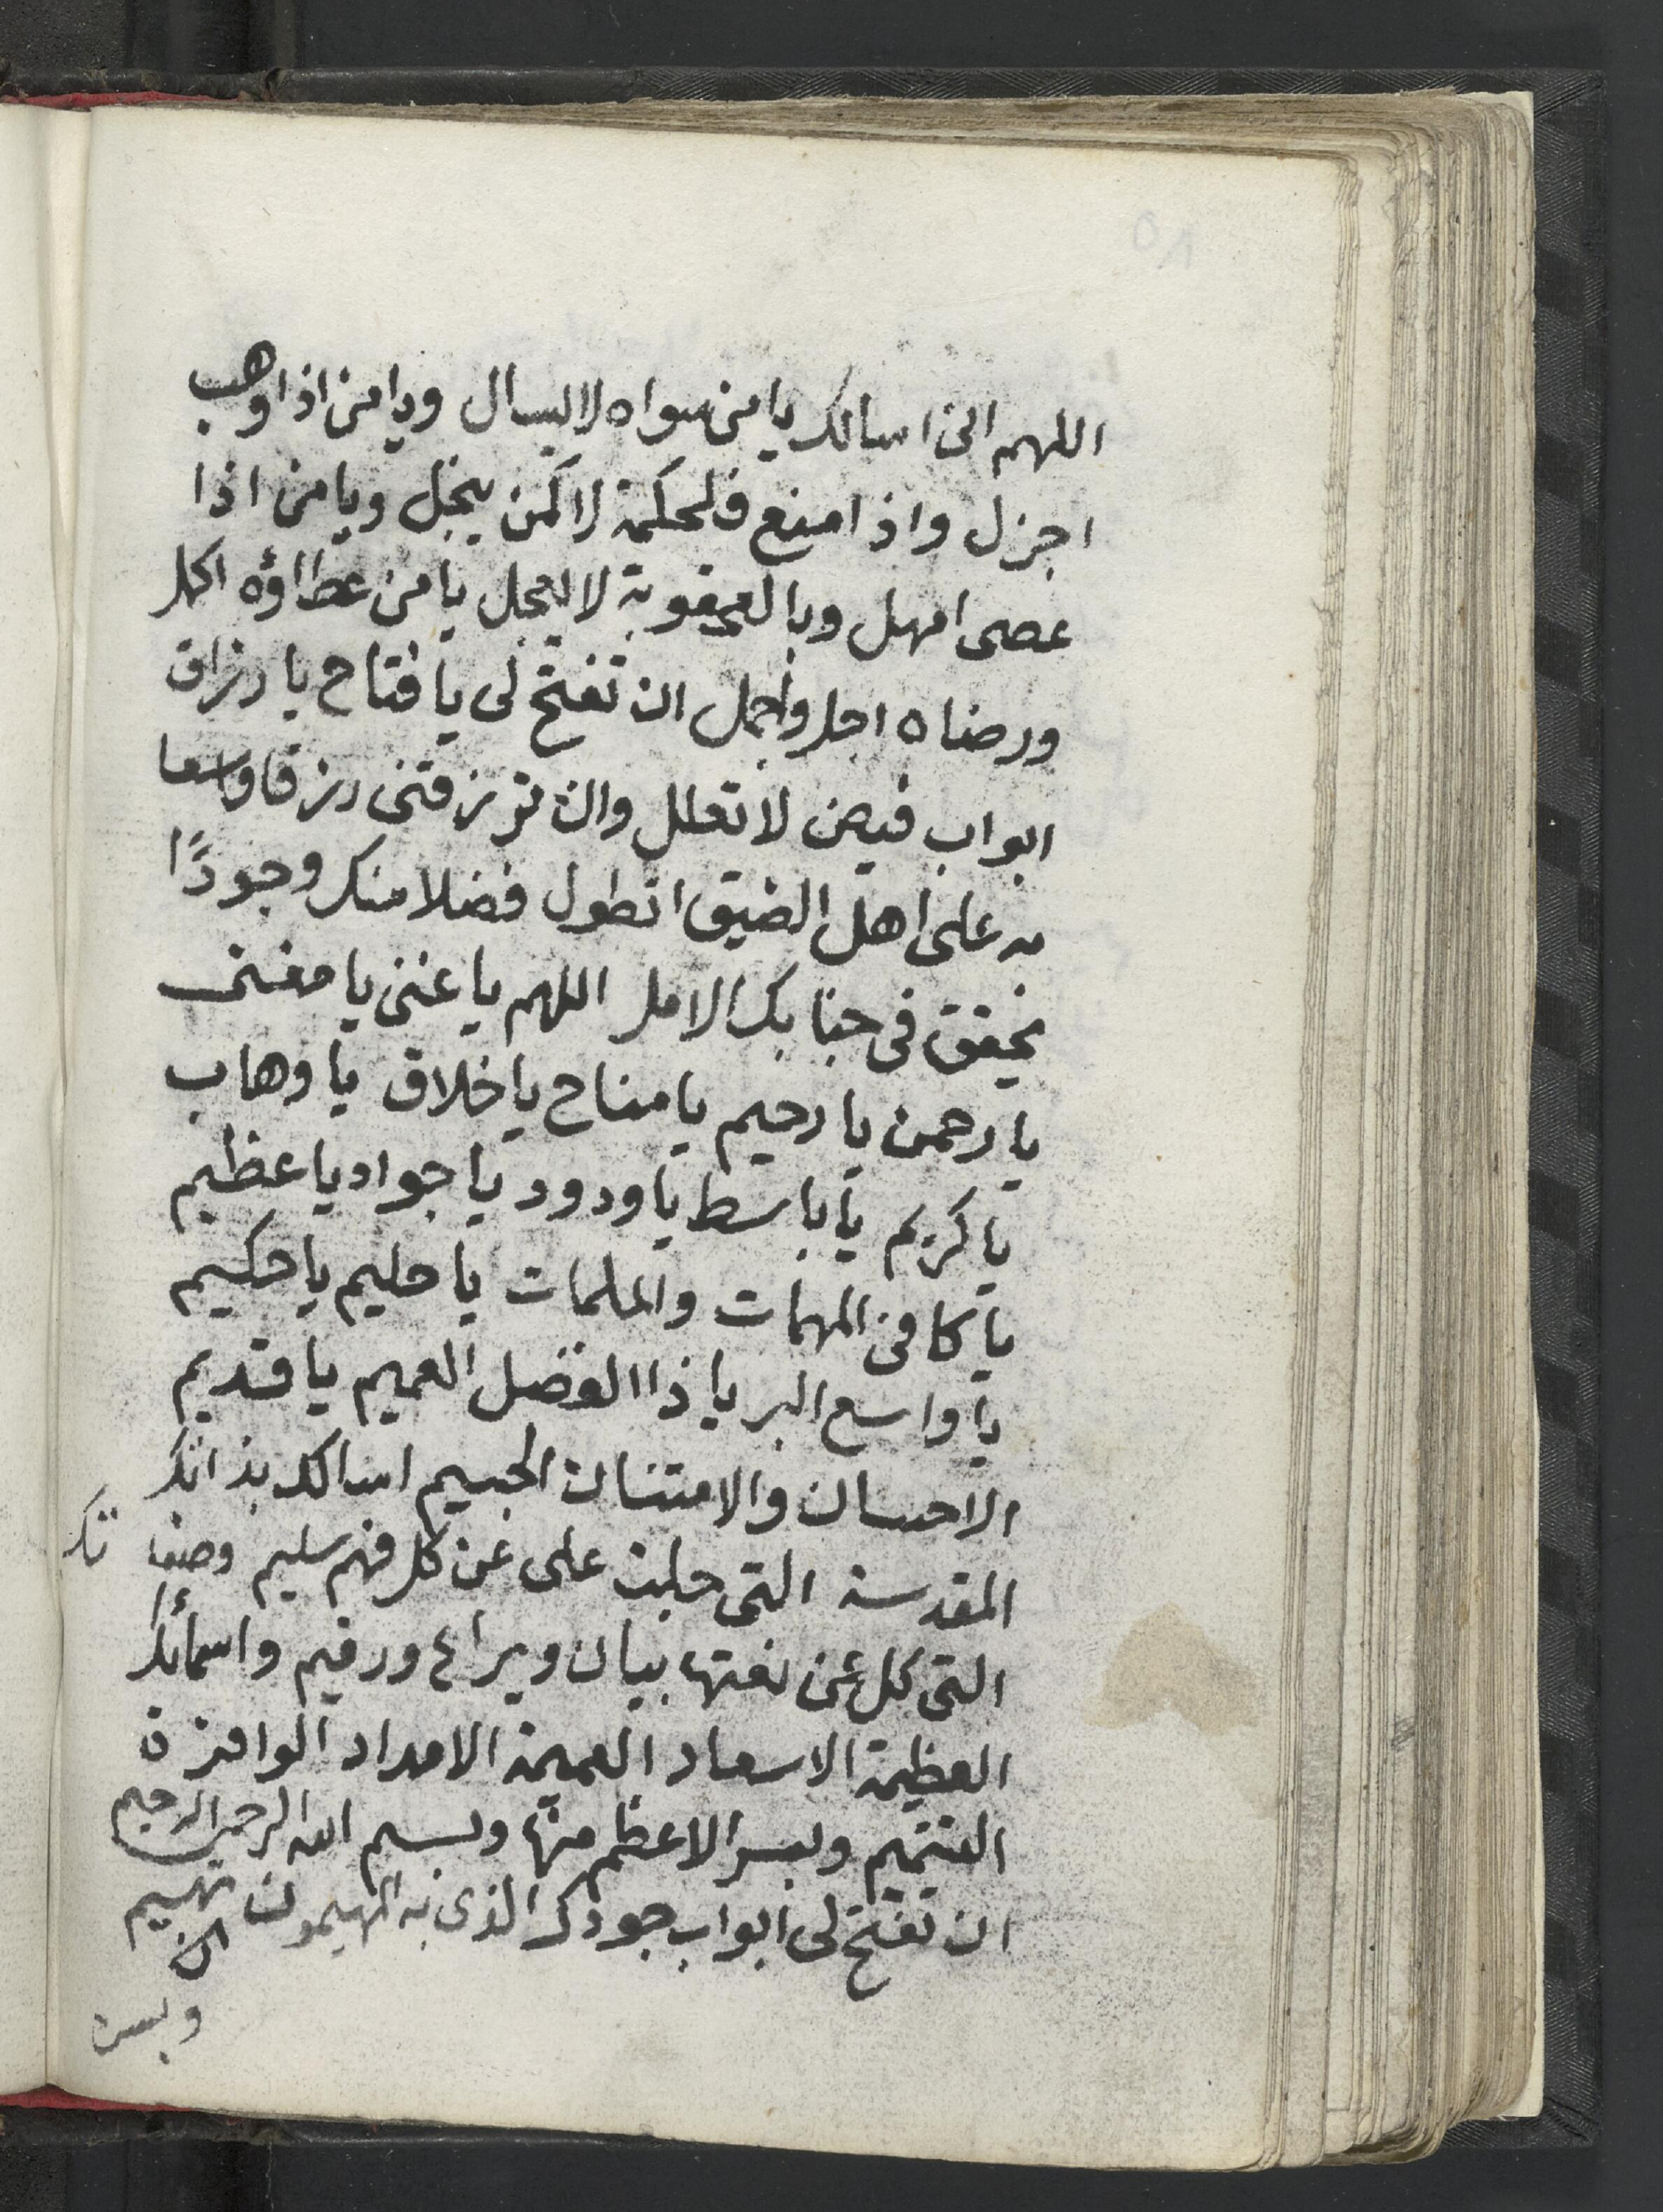 اللهم انى اسالك يا من سواه لا يسال ويا من اذا وهب
اجزل واذا منع فلحكمة لا كمن يبخل ويا من اذا
عصى امهل وبالعقوبة لا يعجل يا من عطاؤه اكمل
ورضاه اجل واجمل ان تفتح لى يا فتاح يا رزاق
ابواب فيض لا تعلل وان ترزقنى رزقا واسعا
به على اهل الضيق اتطول فضلا منك وجودًا
تحقق فى جنابك الامل اللهم يا غنى يا مغنى
يا رحمن يا رحيم يا مناح يا خلاق يا وهاب
يا كريم يا باسط يا ودود يا جواد يا عظيم
يا كافى المهمات والملمات يا حليم يا حكيم
يا واسع البر يا ذا الفضل العميم يا قديم
الاحسان والامتنان الجسيم اسالك بذاتك
المقدسة التى جلت على عن كل فهم سليم وصفاتك
التى كل عن نعتها بيان ويراع ورقيم واسمائك
العظيمة الاسعاد العميمة الامداد الوافرة
التتميم وبسر الاعظم منها وبسم الله الرحمن الرحيم
ان تفتح لى ابواب جودك الذى به المهيمون تهيم
وبسر